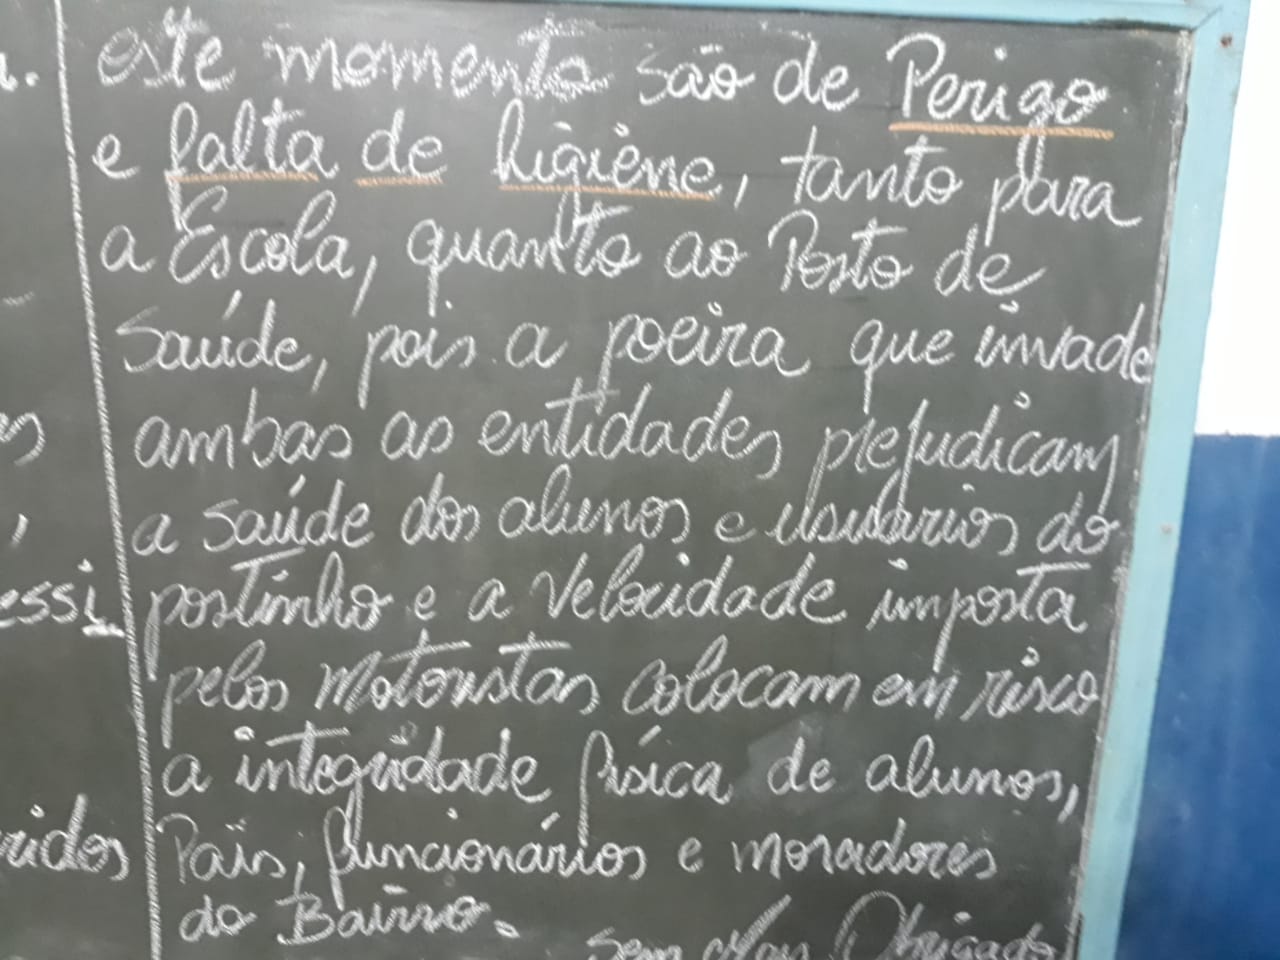 este momento são de Perigo
e falta de higiêne, tanto para
a Escola, quanto ao Posto de
Saúde, pois a poeira que invade
ambas as entidades prejudicam
a saúde dos alunos e usuários do
postinho e a velocidade imposta
pelos motoristas colocam em risco
a integridade física de alunos,
Pais, funcionários e moradores
do Bairro.
Sem Mais, Obrigado
es
,
essi
ridos